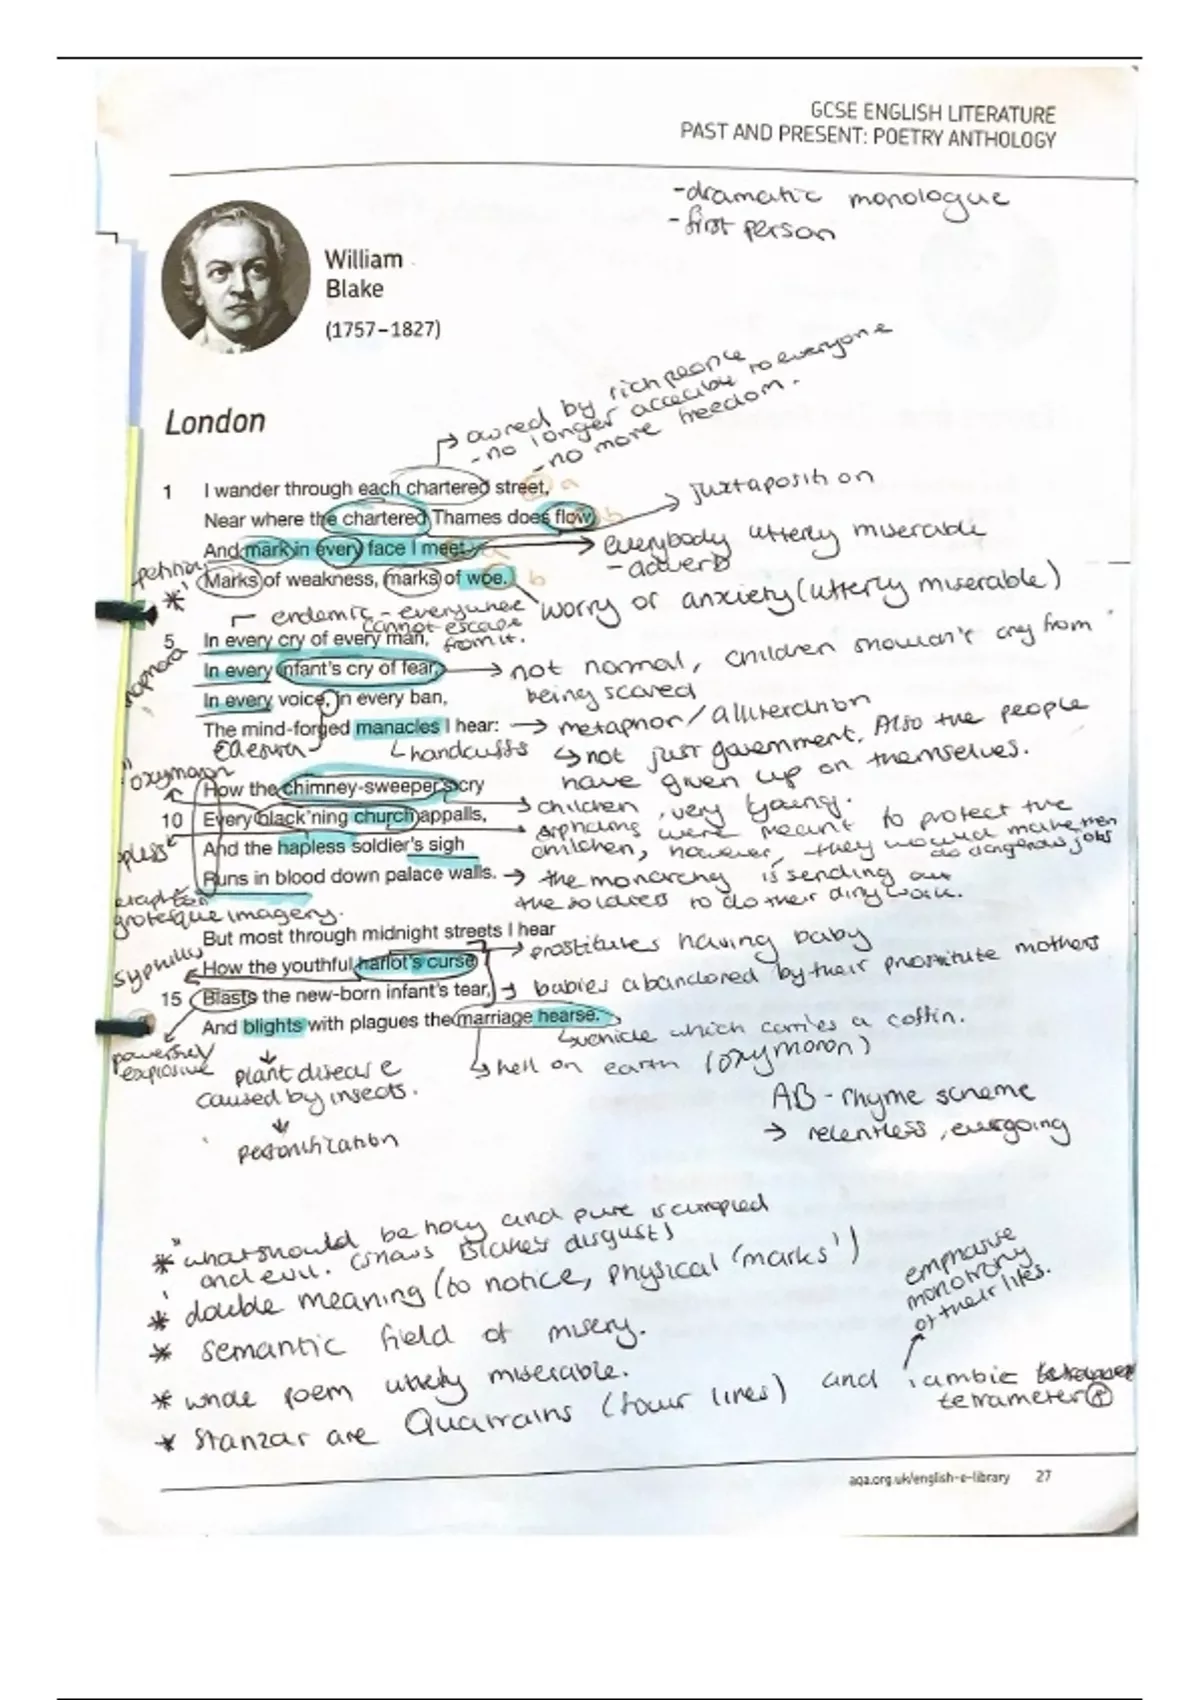 GCSE ENGLISH LITERATURE
PAST AND PRESENT: POETRY ANTHOLOGY
-dramatic monologue
-first person
William
Blake
(1757–1827)
London
owned by rich people
-no longer accecible to everyone
-no more freedom.
1 I wander through each chartered street, a
Near where the chartered Thames does flow, b
juxtaposition
And mark in every face I meet a
everybody utterly miserable
-adverb
Marks of weakness, marks of woe. b
worry or anxiety (utterly miserable)
endemic - everywhere
cannot escape
from it.
5 In every cry of every man,
In every infant's cry of fear,
not normal, children shouldn't cry from
being scared
In every voice, in every ban,
The mind-forged manacles I hear:
metaphor/alliteration
caesura
handcuffs
not just government. Also the people
have given up on themselves.
"oxymoron
How the chimney-sweeper's cry
children, very young.
10 Every black'ning church appalls,
orphans were meant to protect the
children, however, they would make them
do dangerous jobs
And the hapless soldier's sigh
Runs in blood down palace walls.
the monarchy is sending out
the soldiers to do their dirty work.
grotesque imagery.
But most through midnight streets I hear
prostitutes having baby
syphilis
How the youthful harlot's curse
15 Blasts the new-born infant's tear,
babies abandoned by their prostitute mothers
And blights with plagues the marriage hearse.
vehicle which carries a coffin.
powerful/
explosive
plant disease
caused by insects.
hell on earth (oxymoron)
personification
AB - rhyme scheme
→ relentless, everGoing
*" what should be holy and pure is corrupted
and evil. (shows Blake's disgust)
*' double meaning (to notice, physical 'marks')
* semantic field of misery.
* whole poem utterly miserable.
* Stanzar are Quatrains (four lines) and iambic
tetrameter 8
emphasise
monotrony
of their lifes.
aqa.org.uk/english-e-library 27